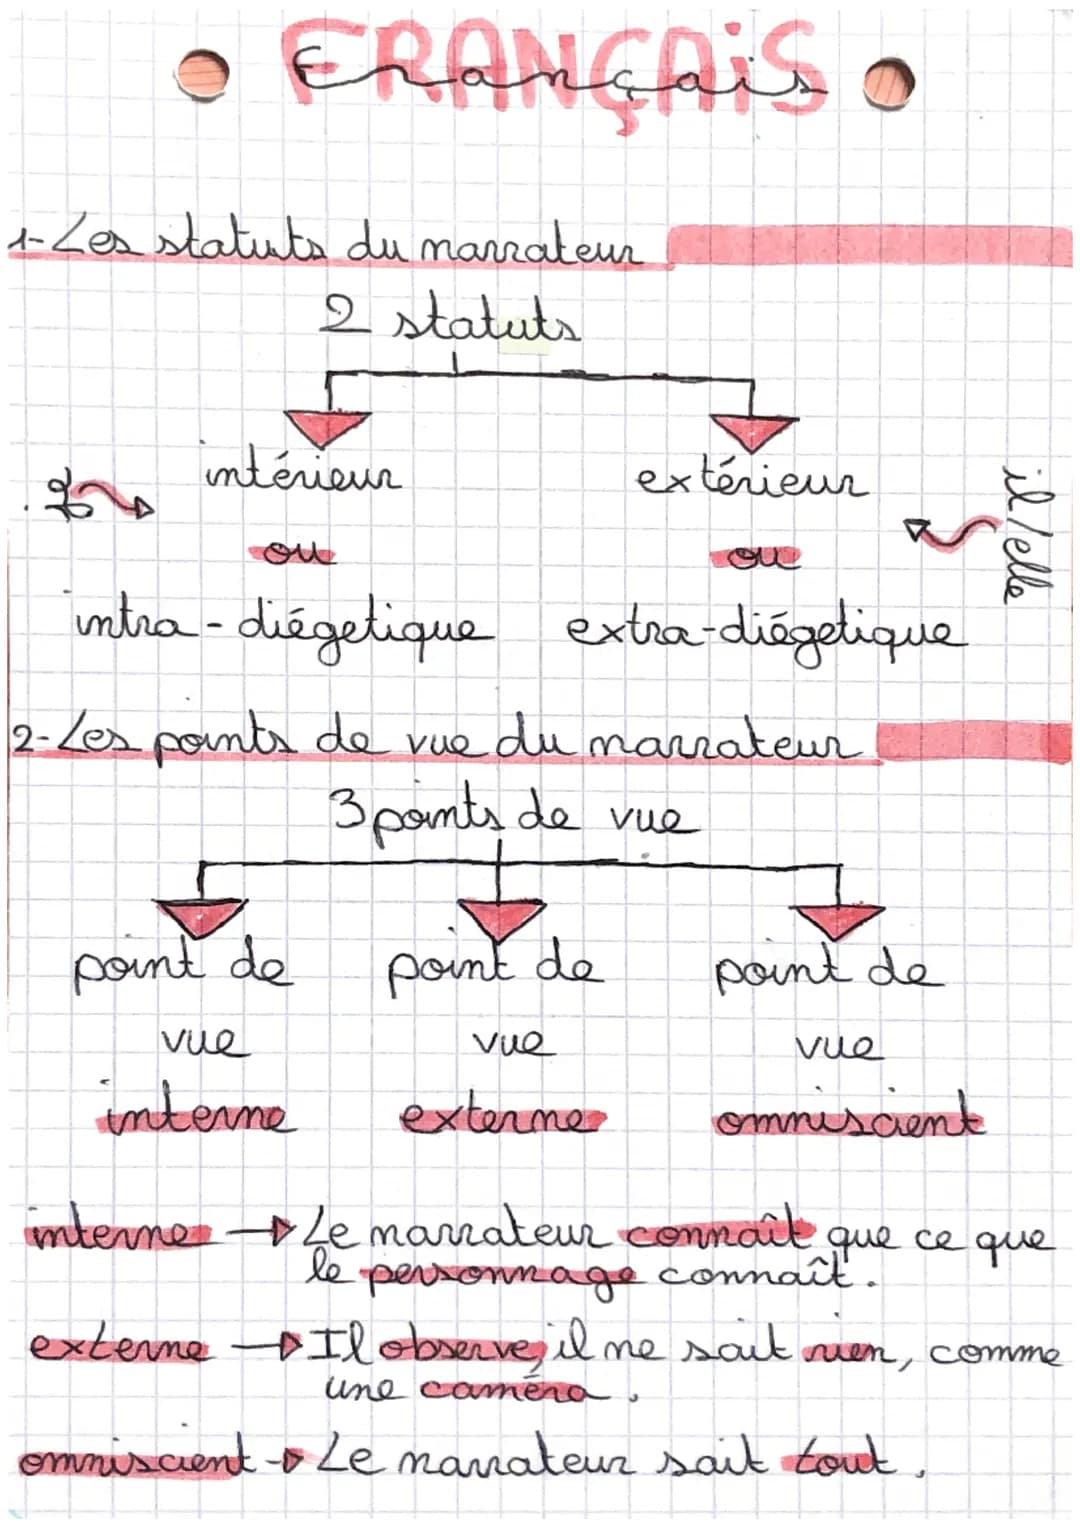 FRANÇAiS
Français
1-Les statuts du narrateur
2 statuts
intérieur extérieur
je
il/elle
ou ou
intra-diégetique extra-diégetique
2-Les points de vue du narrateur
3 points de vue
point de point de point de
vue vue vue
interne externe omniscient
interne → Le narrateur connaît que ce que
le personnage connaît.
externe → Il observe, il ne sait rien, comme
une caméra.
omniscient → Le narrateur sait tout.